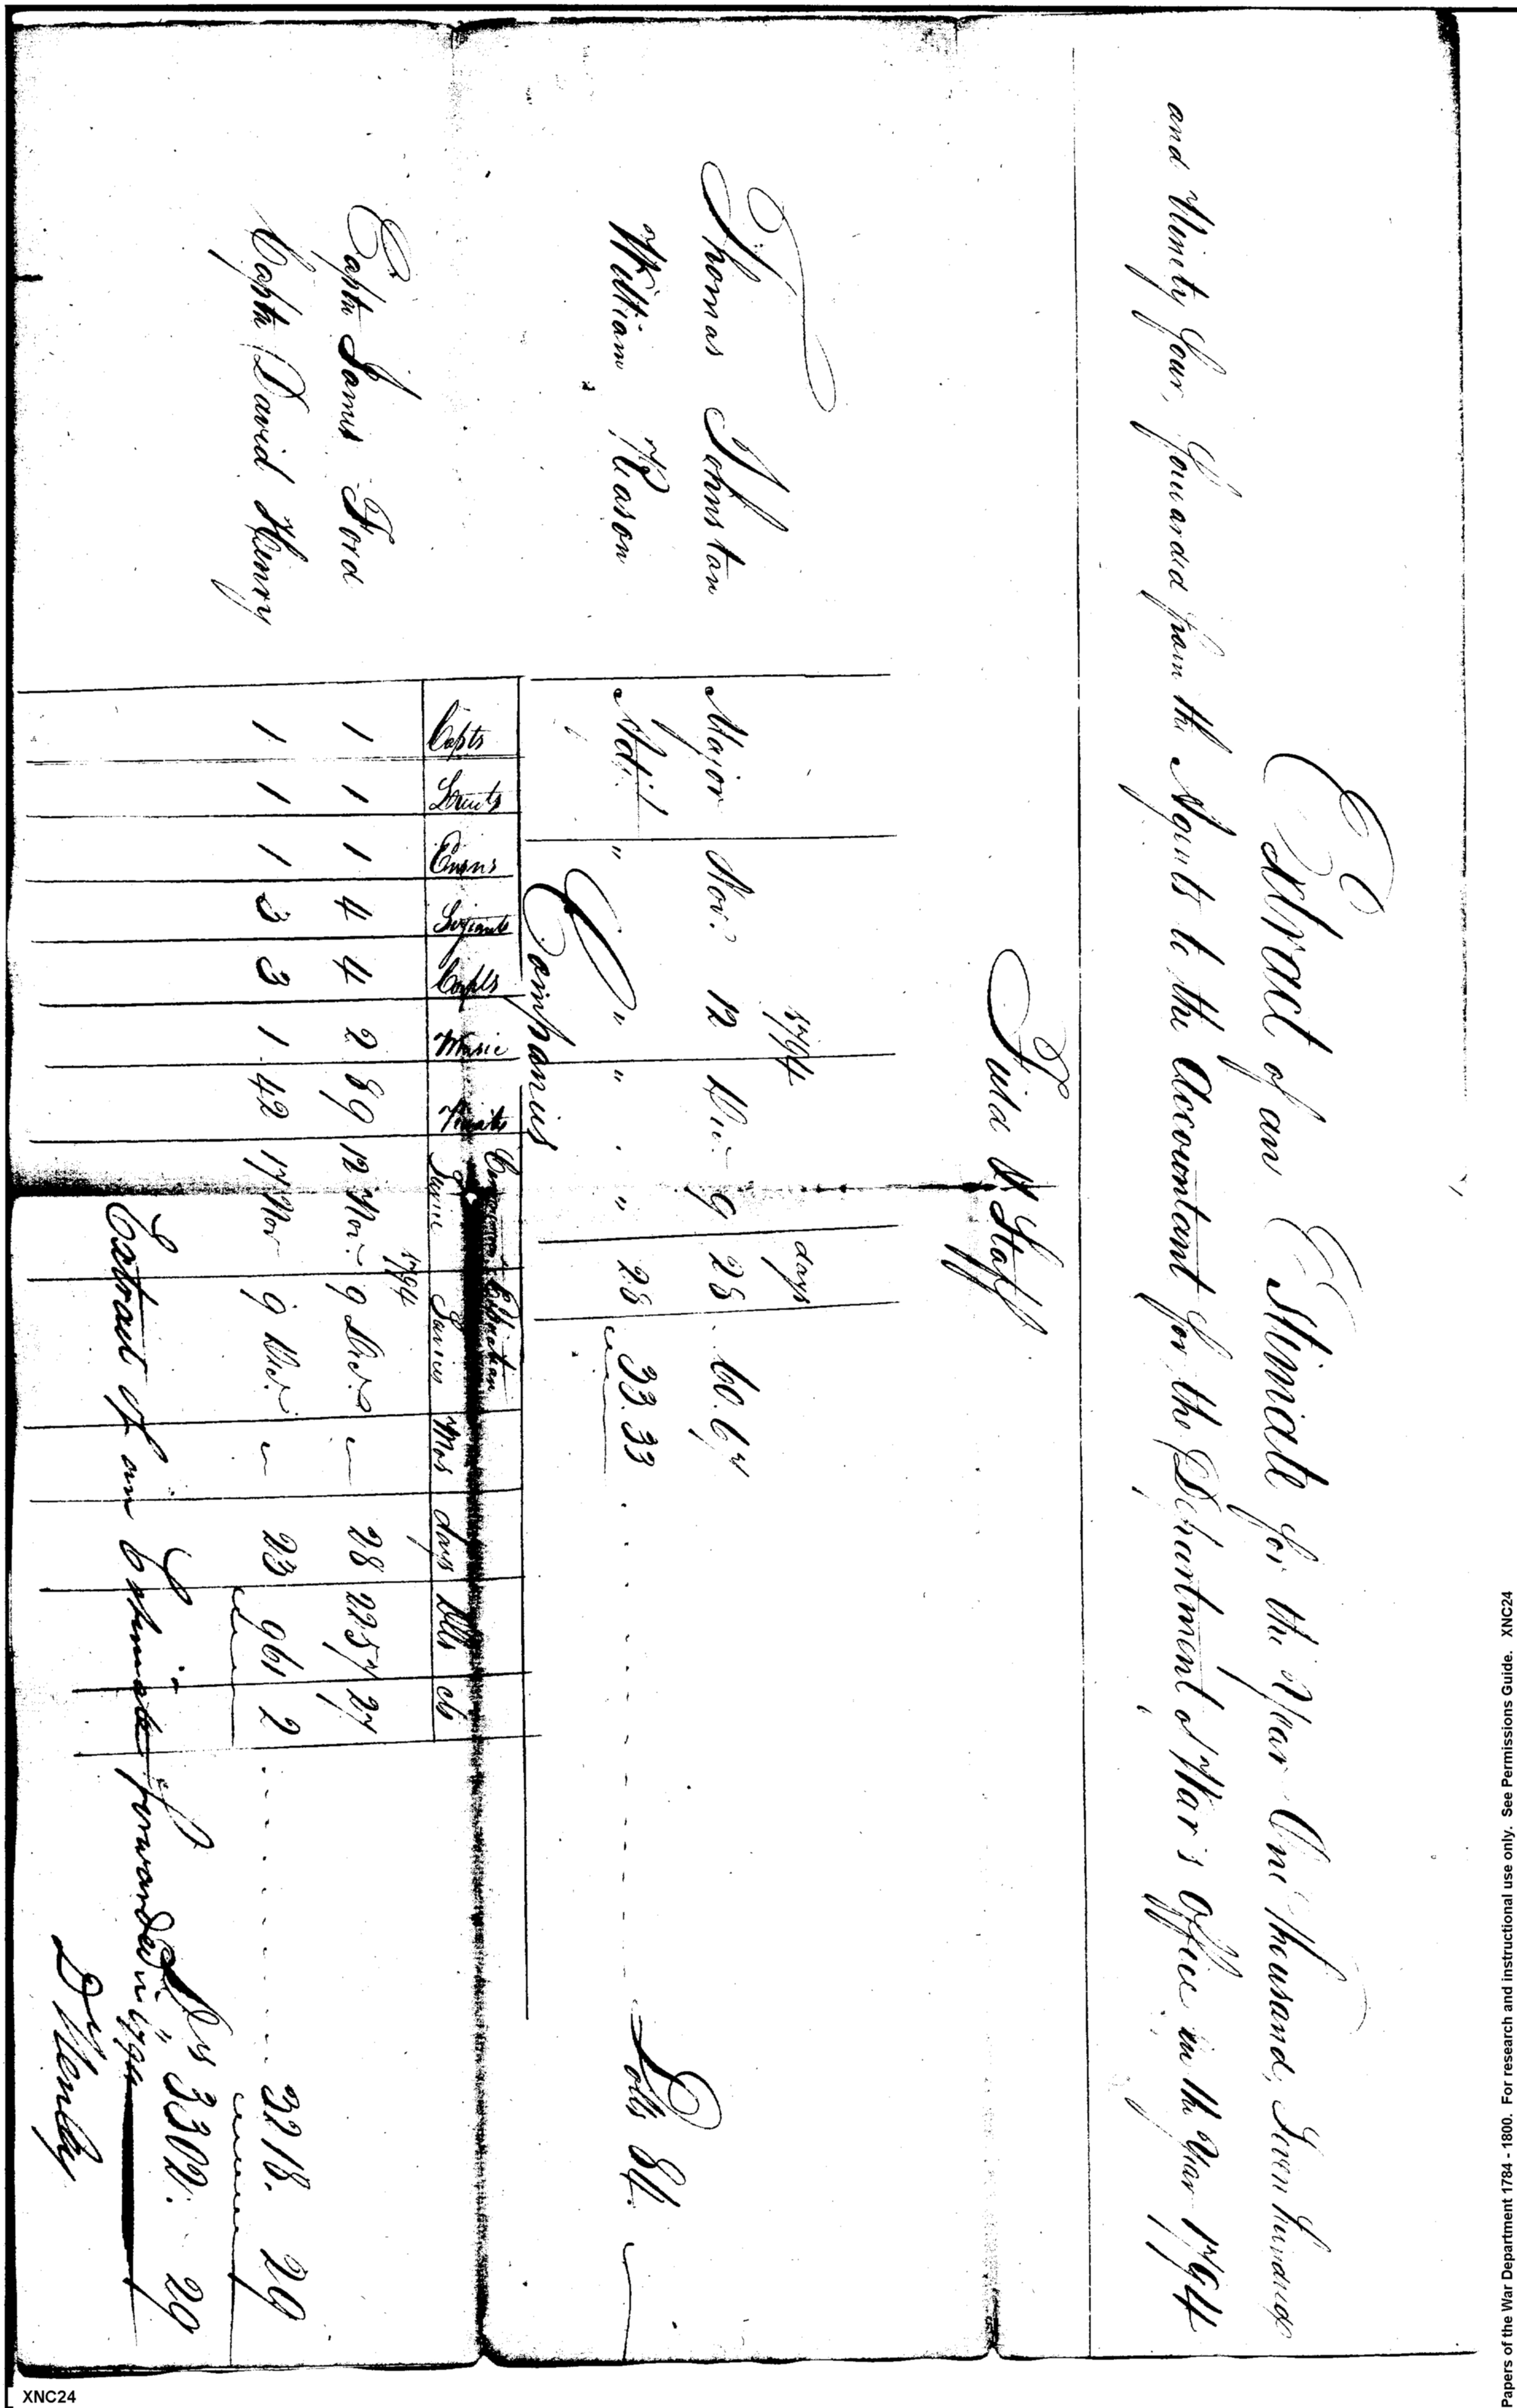 Extract of an Estimate for the Year One thousand, Seven hundred
and Ninety four, forwarded from the Agents to the Accountant for the Department of War's office in the Year 1794
Field & Staff
1794 days
Thomas Johnston Major Nov. 12 Dec. 9 28 60.67
William Reason Adjt. " " " " 28 33.33 Dolls 84.
Companies
Capts Lieuts Ensns Serjeants Corpls Music Privates Service Service Mos days Dlls cts
1794
Captn James Ford 1 1 1 4 4 2 89 12 Nov. 9 Dec. 28 2257 27
Captn David Henry 1 1 1 3 3 1 42 17 Nov 9 Dec. 23 961 2 3218. 29
Drs 3302. 29
Extract of an Estimate forwarded in 1794
D Henley
Papers of the War Department 1784 - 1800. For research and instructional use only. See Permissions Guide. XNC24
XNC24